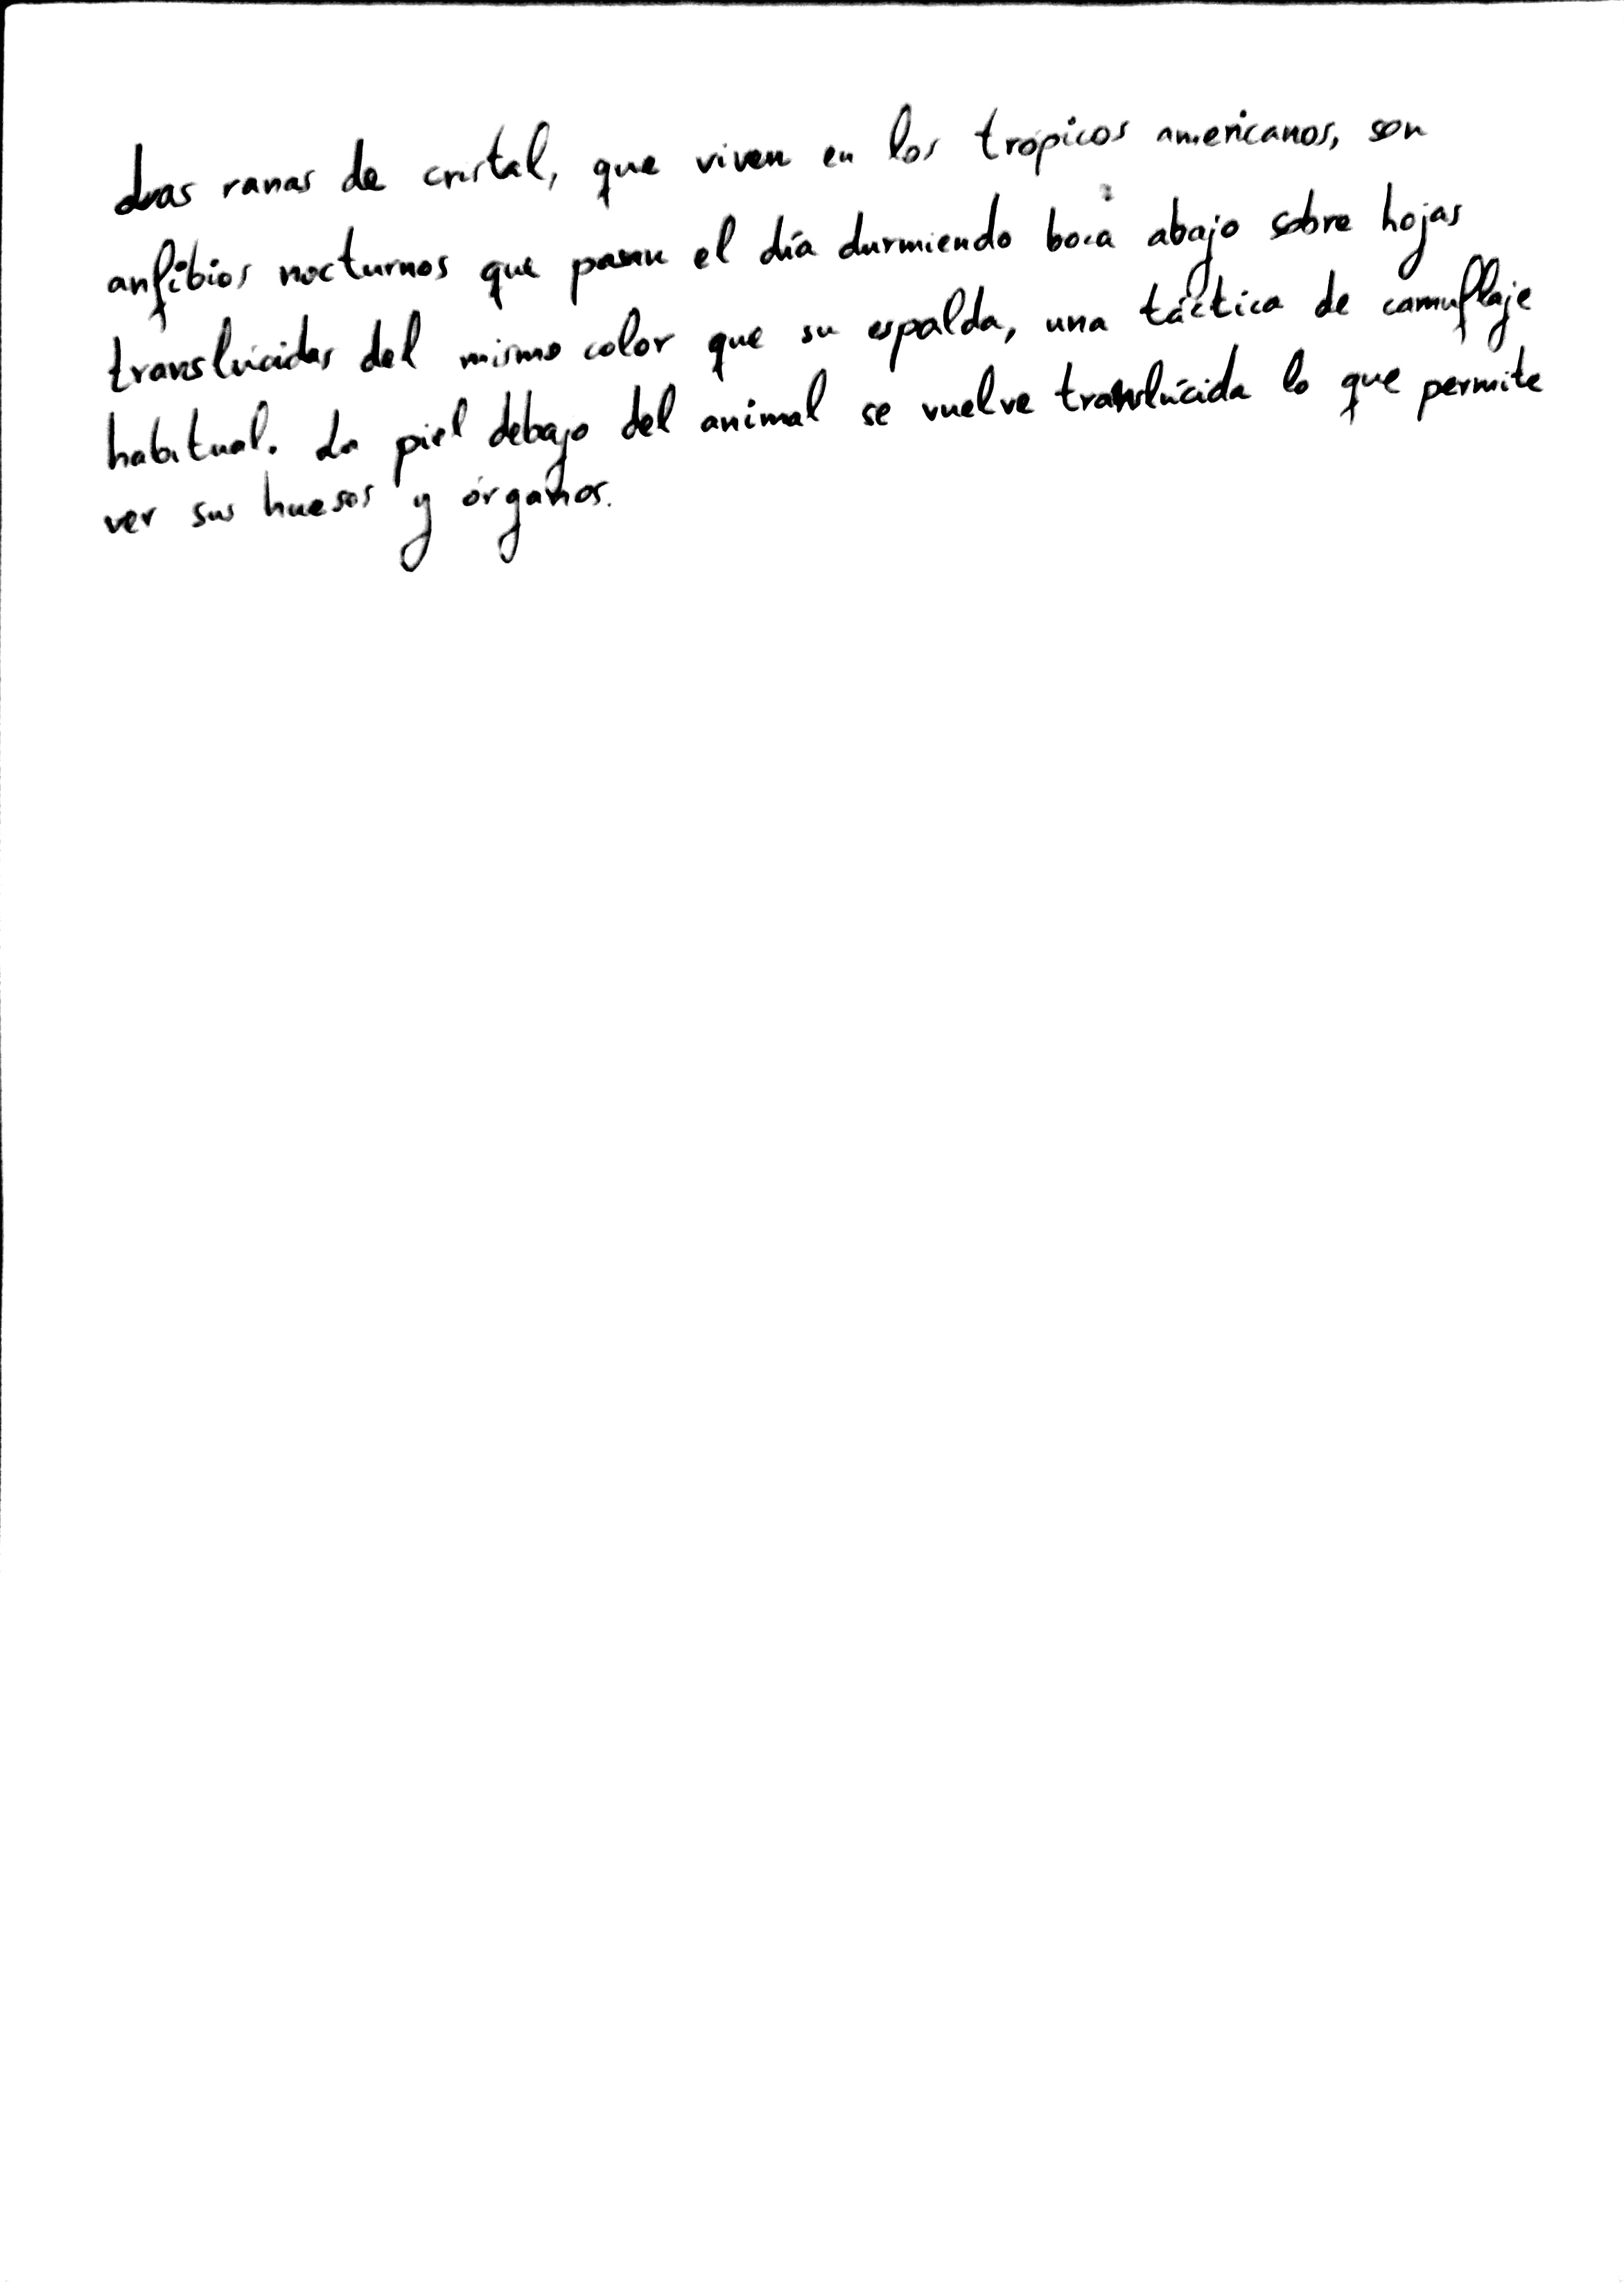 Las ranas de cristal, que viven en los trópicos americanos, son
anfibios nocturnos que pasan el día durmiendo boca abajo sobre hojas
translúcidas del mismo color que su espalda, una táctica de camuflaje
habitual. La piel debajo del animal se vuelve translúcida lo que permite
ver sus huesos y órganos.